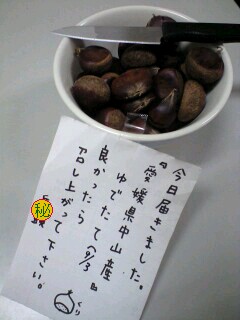 今日届きました。
『愛媛県中山産』
ゆでたて(9/3)
良かったら
召し上がって下さい。
くり
秘